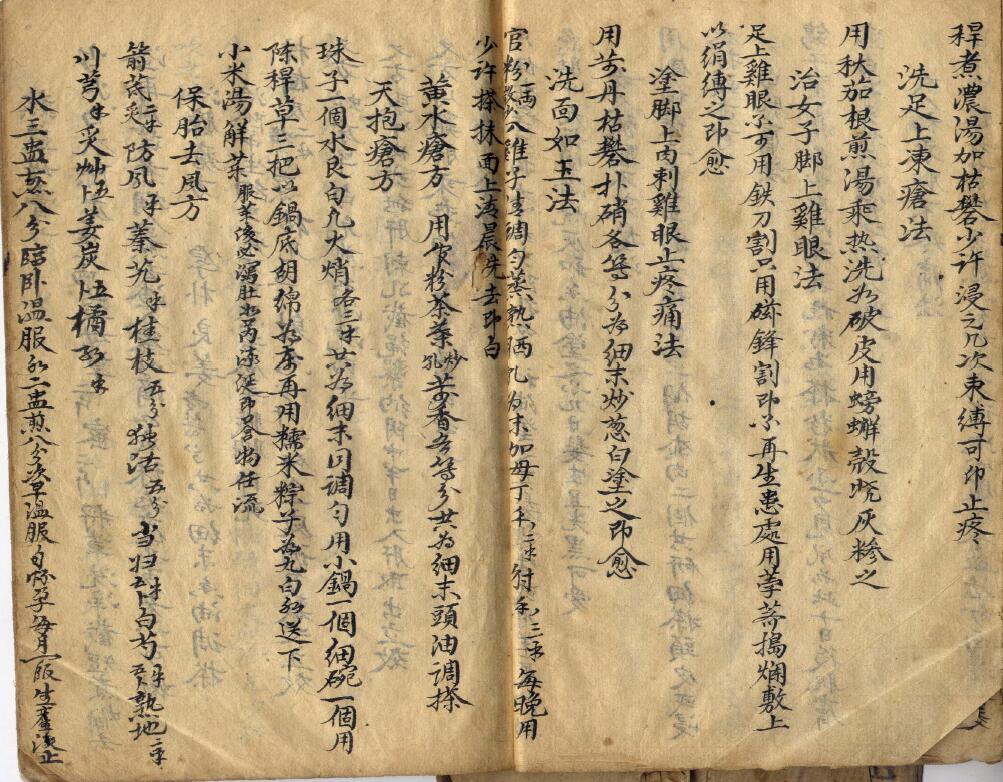 稈煮濃湯加枯礬少許浸之几次束縛可卽止疼
洗足上凍瘡法
用秋茄根煎湯乘热洗如破皮用螃蠏殼燒灰糝之
治女子脚上雞眼法
足上雞眼不可用鉄刀割只用磁鋒割卽不再生患處用荸薺搗爛敷上
以絹縛之卽愈
塗脚上肉刺雞眼止疼痛法
用黃丹枯礬扑硝各等分為細末炒葱白塗之卽愈
洗面如玉法
官粉 雞子清調勻蒸熟晒乹為末加母丁香 每晚用
少許搽抹面上清晨洗去卽白
黃水瘡方 用官粉茶葉炒乹 香各等分共為細末頭油調搽
天抱瘡方
珠子一個水艮白凡火硝各三 共為細末同調勻用小鍋一個細碗一個用
陈稈草三把以鍋底胡綿為度再用糯米粽子為丸白水送下
小米湯解藥服藥後必瀉肚如 流涎卽 物任流
保胎去風方
箭芪 防風 蓁艽 桂枝五分独活五分 当归 白芍 熟地
川芎 炙艸 姜炭 橘
水三盅煎八分臨卧温服 二盅煎八分次早温服 每月一服生產後止